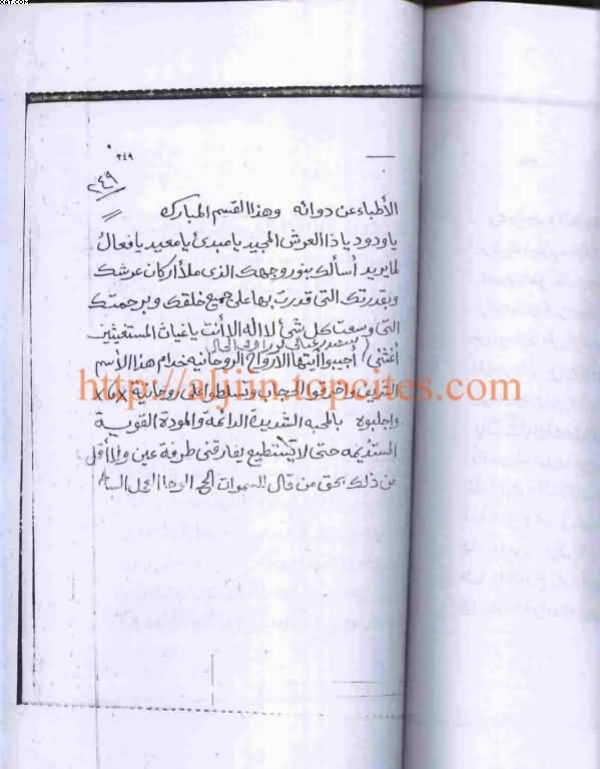 XAT.COM
٢٤٩
٢٤٩
الأطباء عن دوائه وهذا القسم المبارك
ياودود ياذا العرش المجيد يامبدئ يامعيد يافعال
لما يريد أسألك بنور وجهك الذى ملأ اركان عرشك
وبقدرتك التى قدرت بها على جميع خلقك وبرحمتك
التى وسعت كل شئ لا اله الا أنت ياغياث المستغيثين
أغثنى أجيبوا أيتها الارواح الروحانيه خدام هذا الأسم
http://aljjin.topcites.com
الحجاب وتسلطوا على روحانية
واجلبوه بالمحبه الشديدة الدائمة والمودة القوية
المستديمه حتى لا يستطيع يفارقنى طرفة عين ولا أقل
من ذلك بحق من قال للسموات